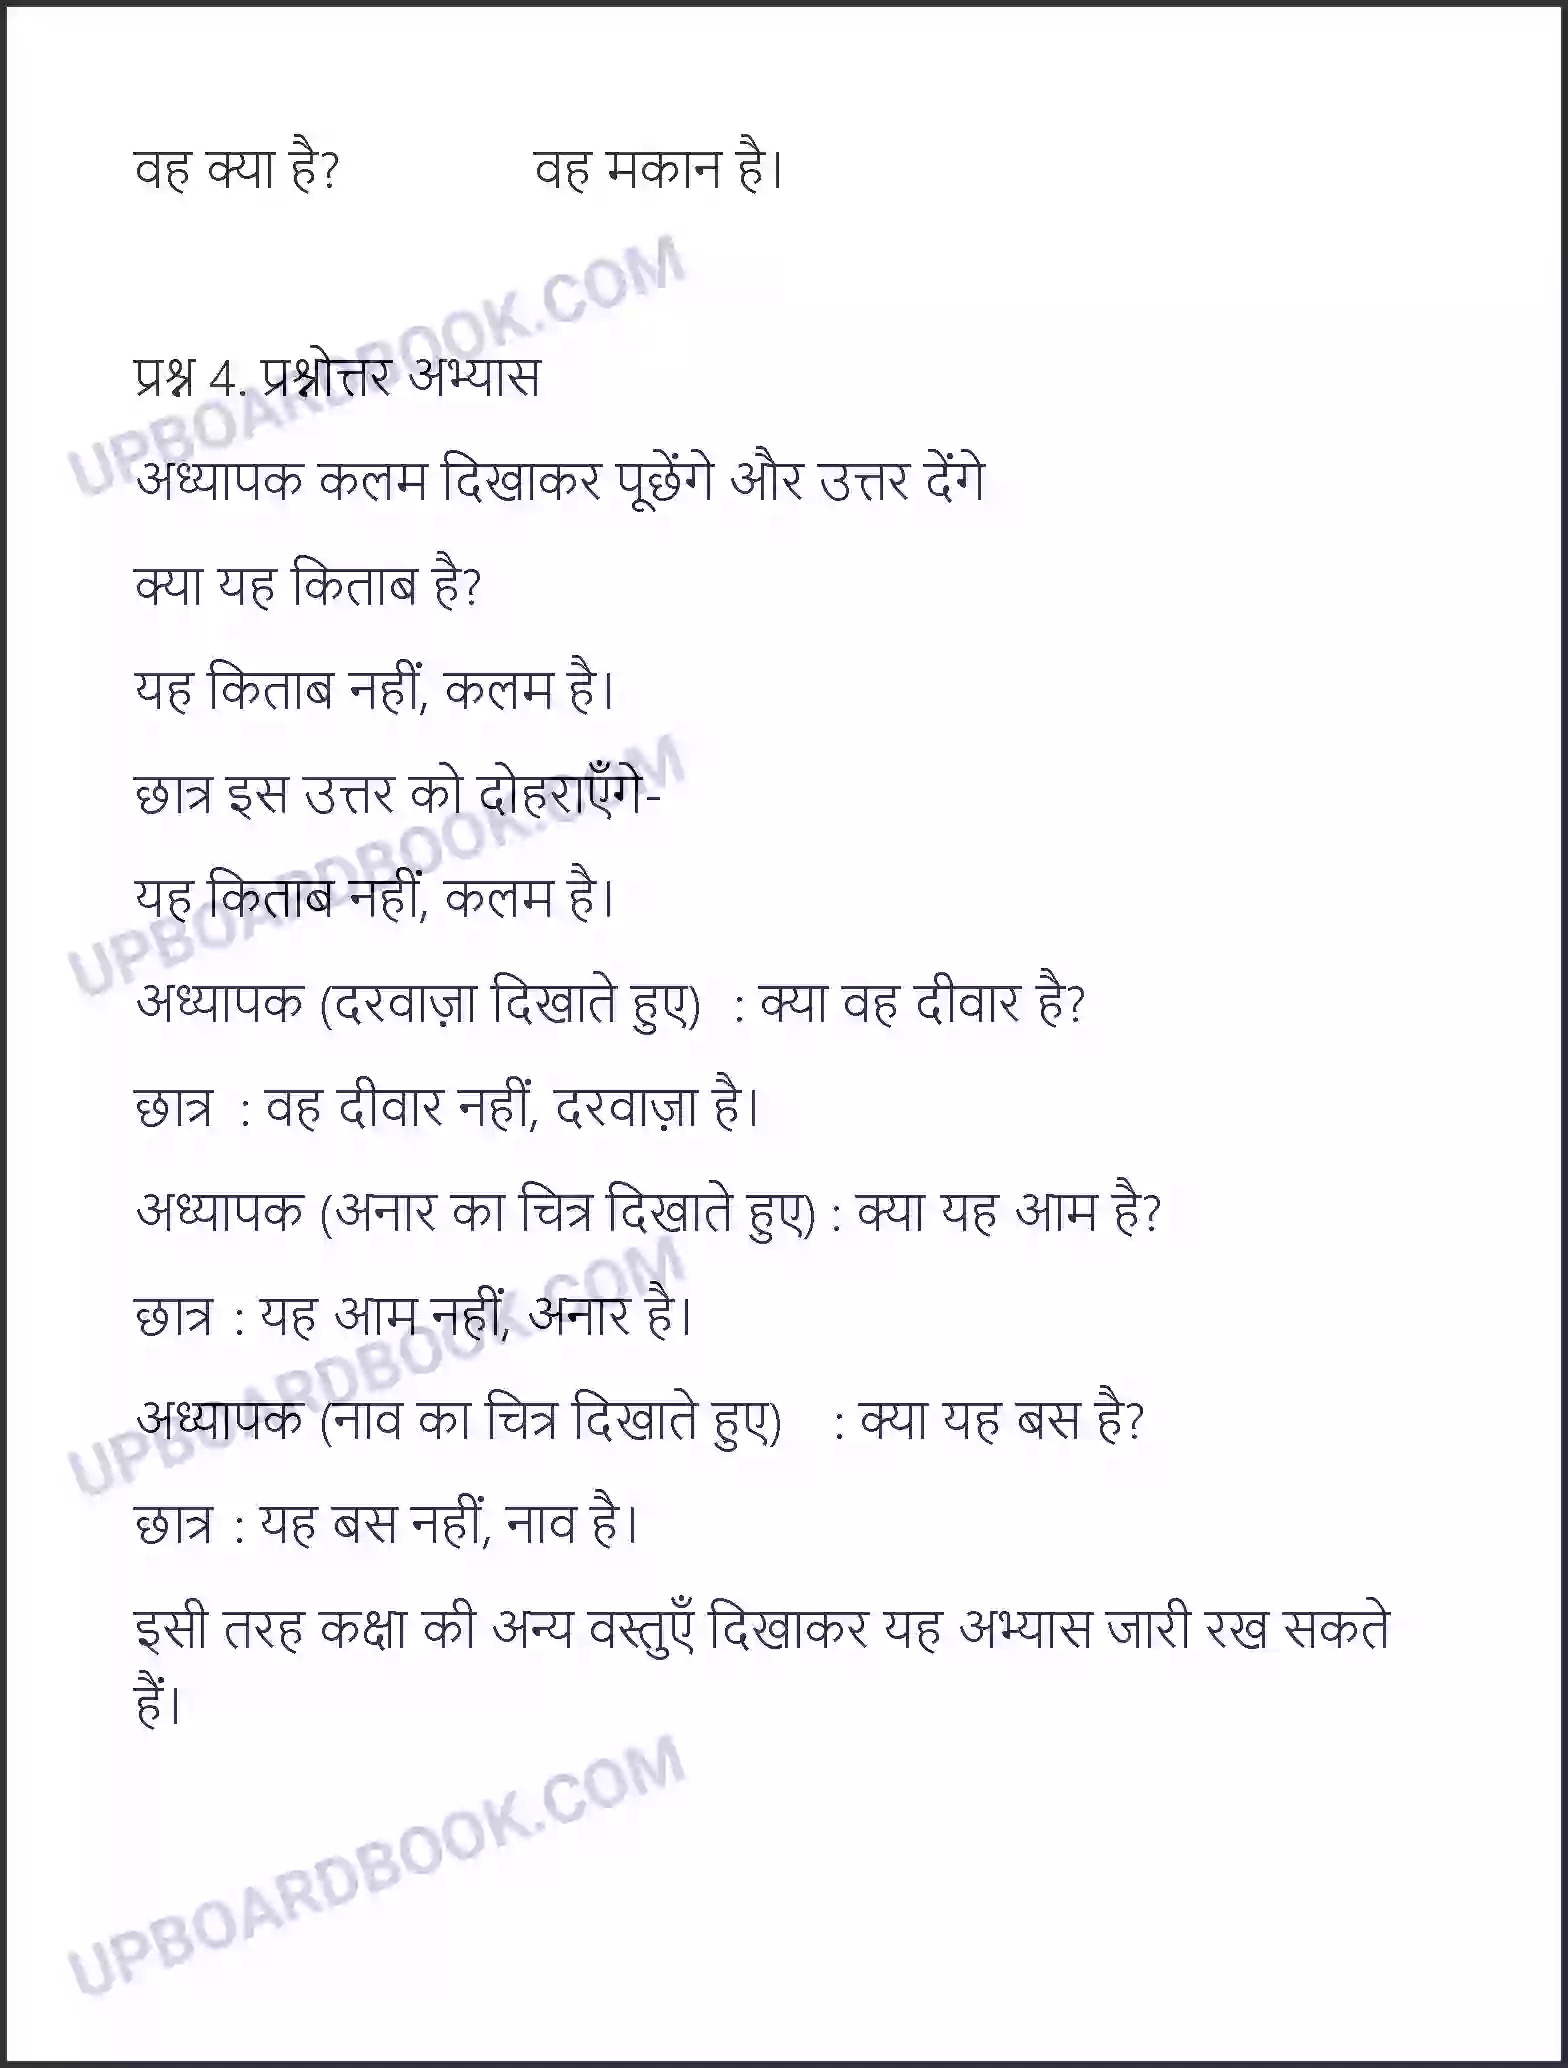 वह क्या है? वह मकान है।
प्रश्न 4. प्रश्नोत्तर अभ्यास
अध्यापक कलम दिखाकर पूछेंगे और उत्तर देंगे
क्या यह किताब है?
यह किताब नहीं, कलम है।
छात्र इस उत्तर को दोहराएँगे-
यह किताब नहीं, कलम है।
अध्यापक (दरवाज़ा दिखाते हुए) : क्या वह दीवार है?
छात्र : वह दीवार नहीं, दरवाज़ा है।
अध्यापक (अनार का चित्र दिखाते हुए) : क्या यह आम है?
छात्र : यह आम नहीं, अनार है।
अध्यापक (नाव का चित्र दिखाते हुए) : क्या यह बस है?
छात्र : यह बस नहीं, नाव है।
इसी तरह कक्षा की अन्य वस्तुएँ दिखाकर यह अभ्यास जारी रख सकते
हैं।
UPBOARDBOOK.COM
UPBOARDBOOK.COM
UPBOARDBOOK.COM
UPBOARDBOOK.COM